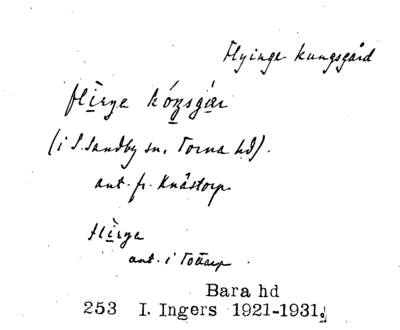 Flyinge kungsgård
(i S. Sandby sn, Torna hd).
ant. fr. Knästorp
ant. i Tottarp
Bara hd
253 I. Ingers 1921-1931.